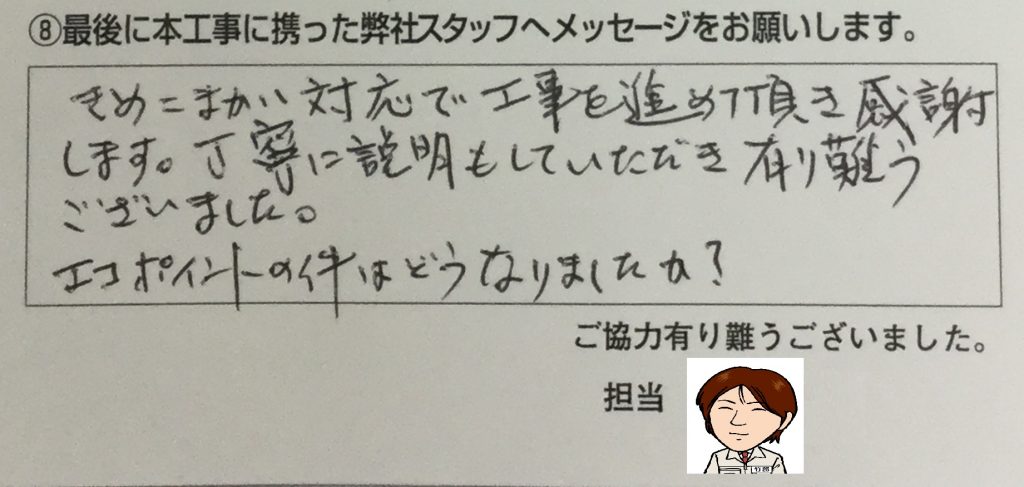 ⑧最後に本工事に携った弊社スタッフへメッセージをお願いします。
きめこまかい対応で工事を進めて頂き感謝
します。丁寧に説明もしていただき有り難う
ございました。
エコポイントの件はどうなりましたか？
ご協力有り難うございました。
担当